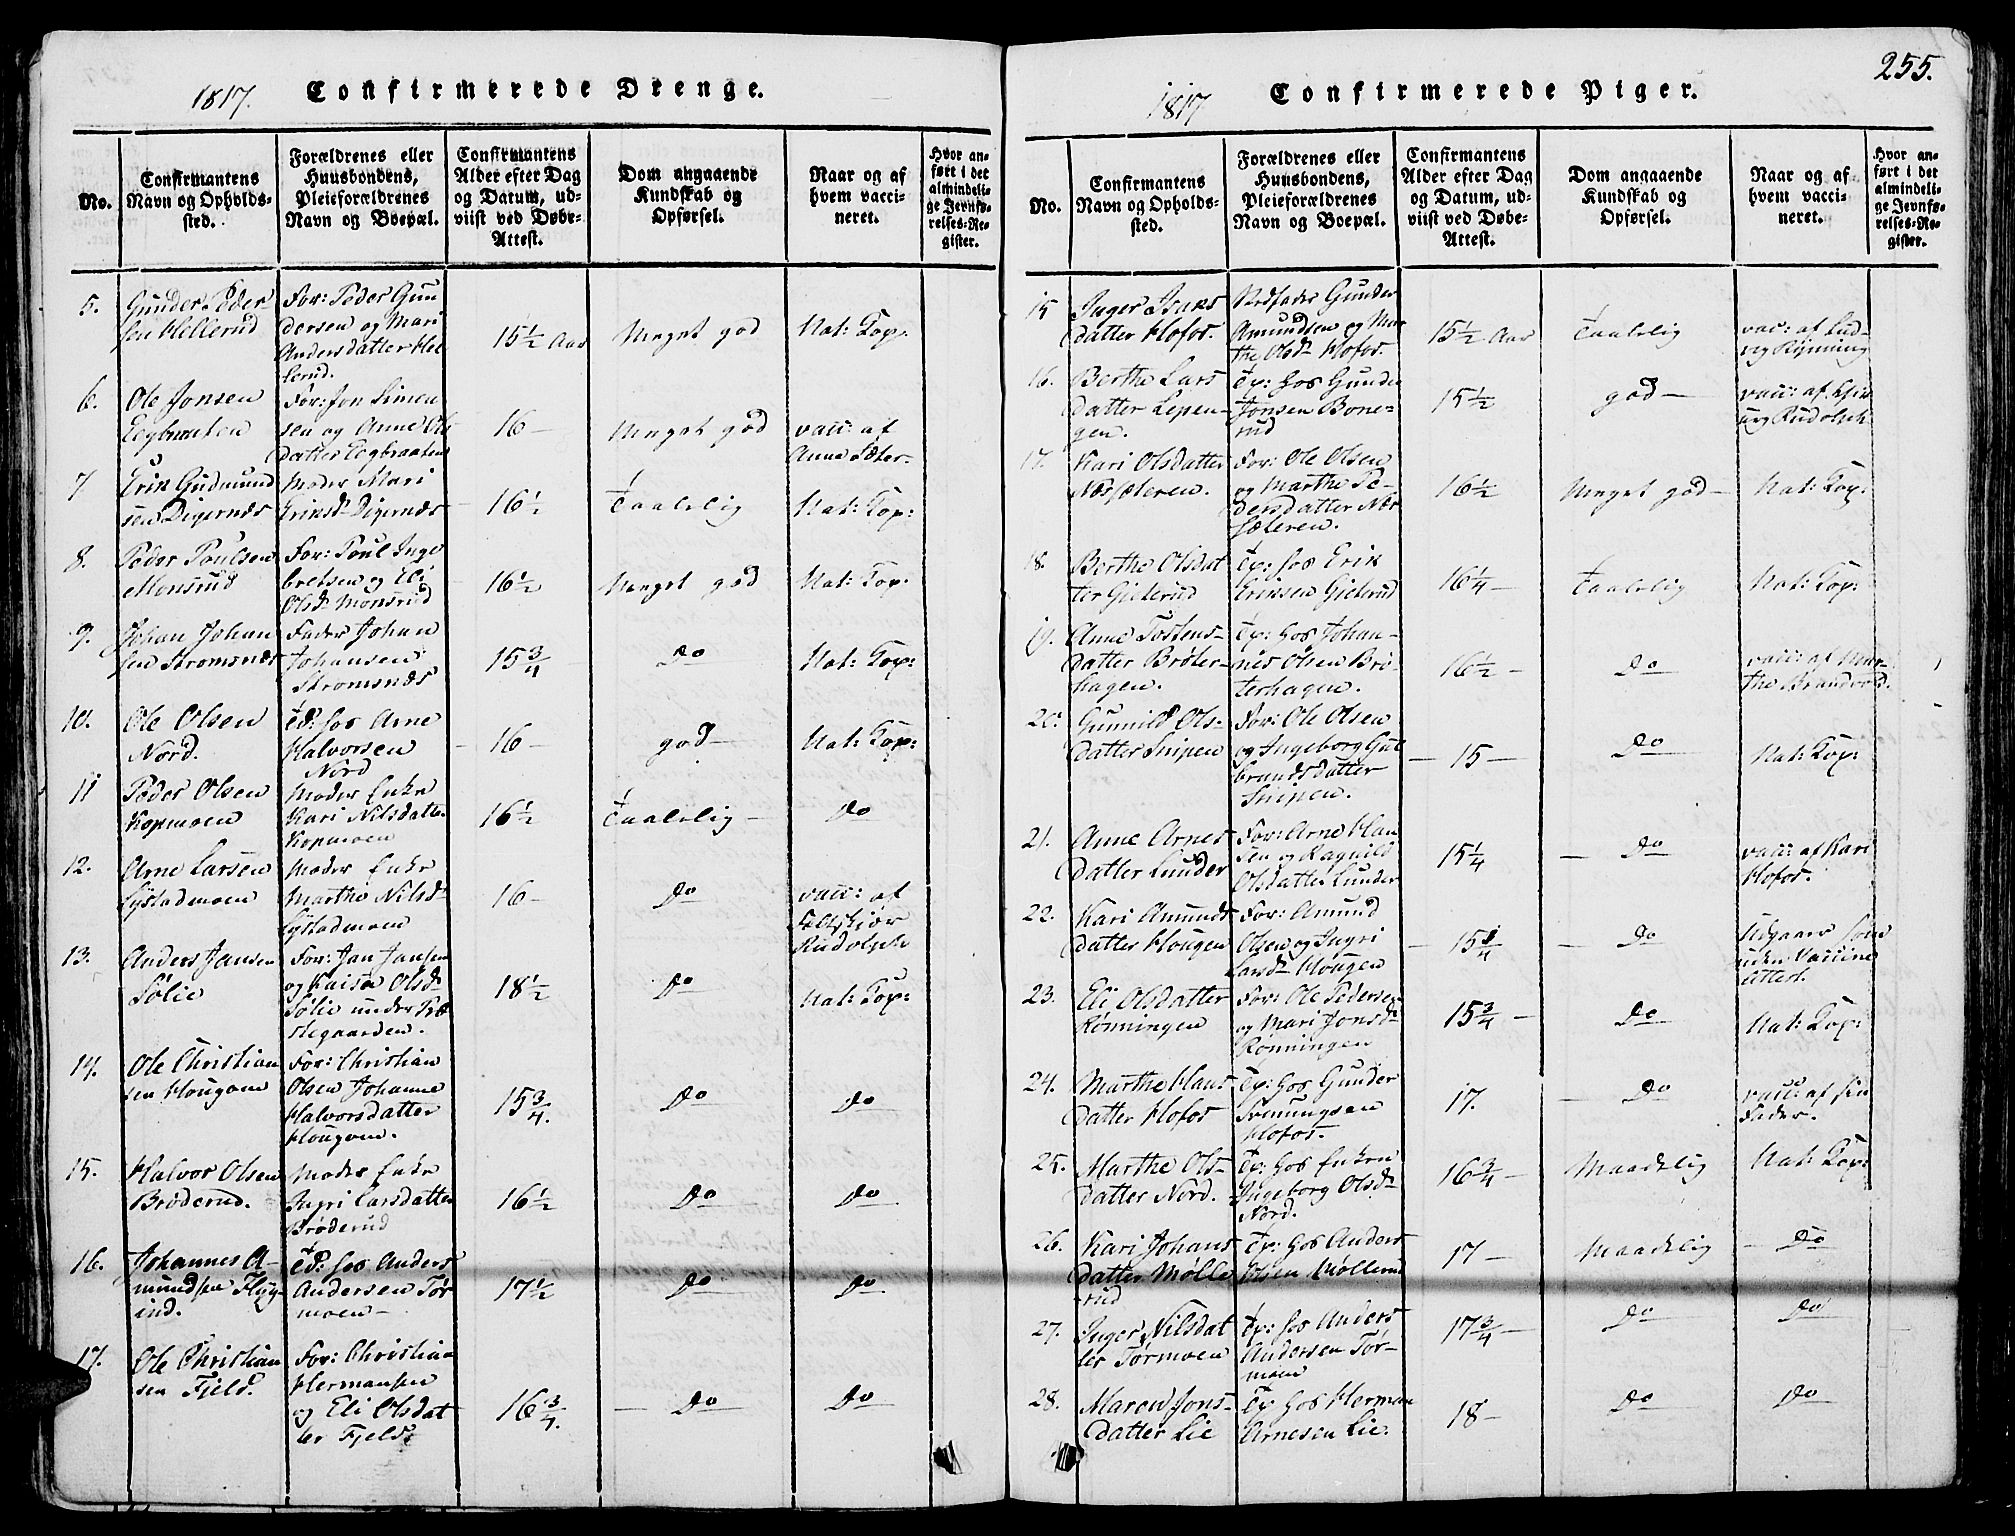 1817. Confirmerede Drenge.
No.
Confirmantens
Navn og Opholds-
sted.
Forældrenes eller
Huusbondens,
Pleieforældrenes
Navn og Boepæl.
Confirmantens
Alder efter Dag
og Datum, ud-
viist ved Døbe-
Attest.
Dom angaaende
Kundskab og
Opførsel.
Naar og af
hvem vacci-
neret.
Hvor an-
ført i det
almindeli-
ge Jevnfø-
relses-Re-
gister.
5.
Gunder Peder
sen Hellerud
For: Peder Gun
dersen og Mari
Andersdatter Hel
lerud.
15½ Aar
Meget god
Nat: Kop:
6.
Ole Jonsen
Eegbraaten
For: Jon Simen
sen og Anne Ols
datter Eegbraaten
16 –
Meget god
vacc: af
Anne Sæter-
7
Erik Gudmund
sen Digernæs
Moder Mari
Eriksd. Digernæs
16½
Taalelig
Nat: Kop:
8.
Peder Poulsen
Monsrud
For: Poul Inge
bretsen og Eli
Olsd. Monsrud
16½
Meget god
Nat: Kop:
9.
Johan Johan
sen Stromsnæs
Fader Johan
Johansen
Stromsnæs
15¾
Do
Nat: Kop:
10.
Ole Olsen
Nord.
Tp: hos Arne
Halvorsen
Nord
16 –
god –
Nat: Kop:
11
Peder Olsen
Kopmoen
Moder Enke
Kari Nilsdatte
Kopmoen
16½
Taalelig –
Do
12.
Arne Larsen
Lystadmoen
Moder Enke
Marthe Nilsd.
Lystadmoen
16 –
Do
vacc: af
Feltskjær
Rudolph
13.
Anders Jansen
Sølie
For: Jan Jansen
og Kaisa Olsd.
Sølie under Præ
stegaarden.
18½
Do
Nat: Kop:
14.
Ole Christian
sen Hougom
For: Christian
Olsen Johanne
Halvorsdatter
Hougom.
15¾.
Do
Do
15.
Halvor Olsen
Brøderud.
Moder Enke
Ingri Larsdatter
Brøderud
16½
Do
Do
16.
Johannes A-
mundsen Flyg-
ind.
Tp: hos Anders
Andersen Tør
moen –
17½
Do
Do
17.
Ole Christian
sen Fjeld.
For: Christian
Hermansen
og Eli Olsdat
ter Fjeld.
16¾.
– Do
Do
255.
1817 Confirmerede Piger.
No.
Confirmantens
Navn og Opholds-
sted.
Forældrenes eller
Huusbondens,
Pleieforældrenes
Navn og Boepæl.
Confirmantens
Alder efter Dag
og Datum, ud-
viist ved Døbe-
Attest.
Dom angaaende
Kundskab og
Opførsel.
Naar og af
hvem vacci-
neret.
Hvor an-
ført i det
almindeli-
ge Jevnfø-
relses-Re-
gister.
15
Inger Isaks
datter Hofos.
Stedfader Gunder
Amundsen og Mar
the Olsd. Hofos.
15½ Aar
Taalelig
vac: af Lud-
vig Rønning
16.
Berthe Lars
datter Lepen-
gen.
Tp: hos Gunder
Jonsen Bone-
rud
15½
god –
vacc: af
Rudolph
17.
Kari Olsdatter
Næssæteren.
For: Ole Olsen
og Marthe Pe-
dersdatter Næs
sæteren.
16½
Meget god –
Nat: Kop:
18.
Berthe Olsdat
ter Gieterud
Tp: hos Erik
Eriksen Gieterud
16¼ –
Taalelig
Nat: Kop:
19.
Anne Tostens-
datter Brøter-
hagen.
Tp: hos Johan-
nes Olsen Brø-
terhagen.
16½ –
Do
vacc: af Mar-
the Brandvold.
20.
Gunnild Ols-
datter Snipen
For: Ole Olsen
og Ingeborg Gul
brandsdatter
Snipen.
– 15 –
Do
Nat: Kop:
21.
Anne Arnes
datter Lunder
For: Arne Han
sen og Ragnild
Olsdatter Lunder
15¼
– Do
vacc: af Kari
Hofos.
22.
Kari Amunds
datter Hougen
For: Amund
Olsen og Ingri
Larsd. Hougen
– 15¼
– Do
Udgaaer som
uden Vaccine
Attest.
23.
Eli Olsdatter
Rønningen
For: Ole Pedersen
og Mari Jonsd.
Rønningen
15¾ –
Do
Nat: Kop:
24.
Marthe Hans
datter Hofos
Tp: hos Gunder
Svenungsen
Hofos.
17.
– Do
vacc: af sin
Fader.
25.
Marthe Ols-
datter Nord.
Tp: hos Enken
Ingeborg Olsd.
Nord.
16¾ –
Maadelig
Nat: Kop:
26.
Kari Johans
datter Mølle
rud
Tp: hos Anders
Olsen Møllerud
17 –
Maadelig
– Do
27.
Inger Nilsdat
ter Tørmoen
Tp: hos Anders
Andersen Tør-
moen
17¾ –
Do
Do
28.
Maren Jons-
datter Lie
Tp hos Herman
Arnesen Lie.
18 –
Do
Do